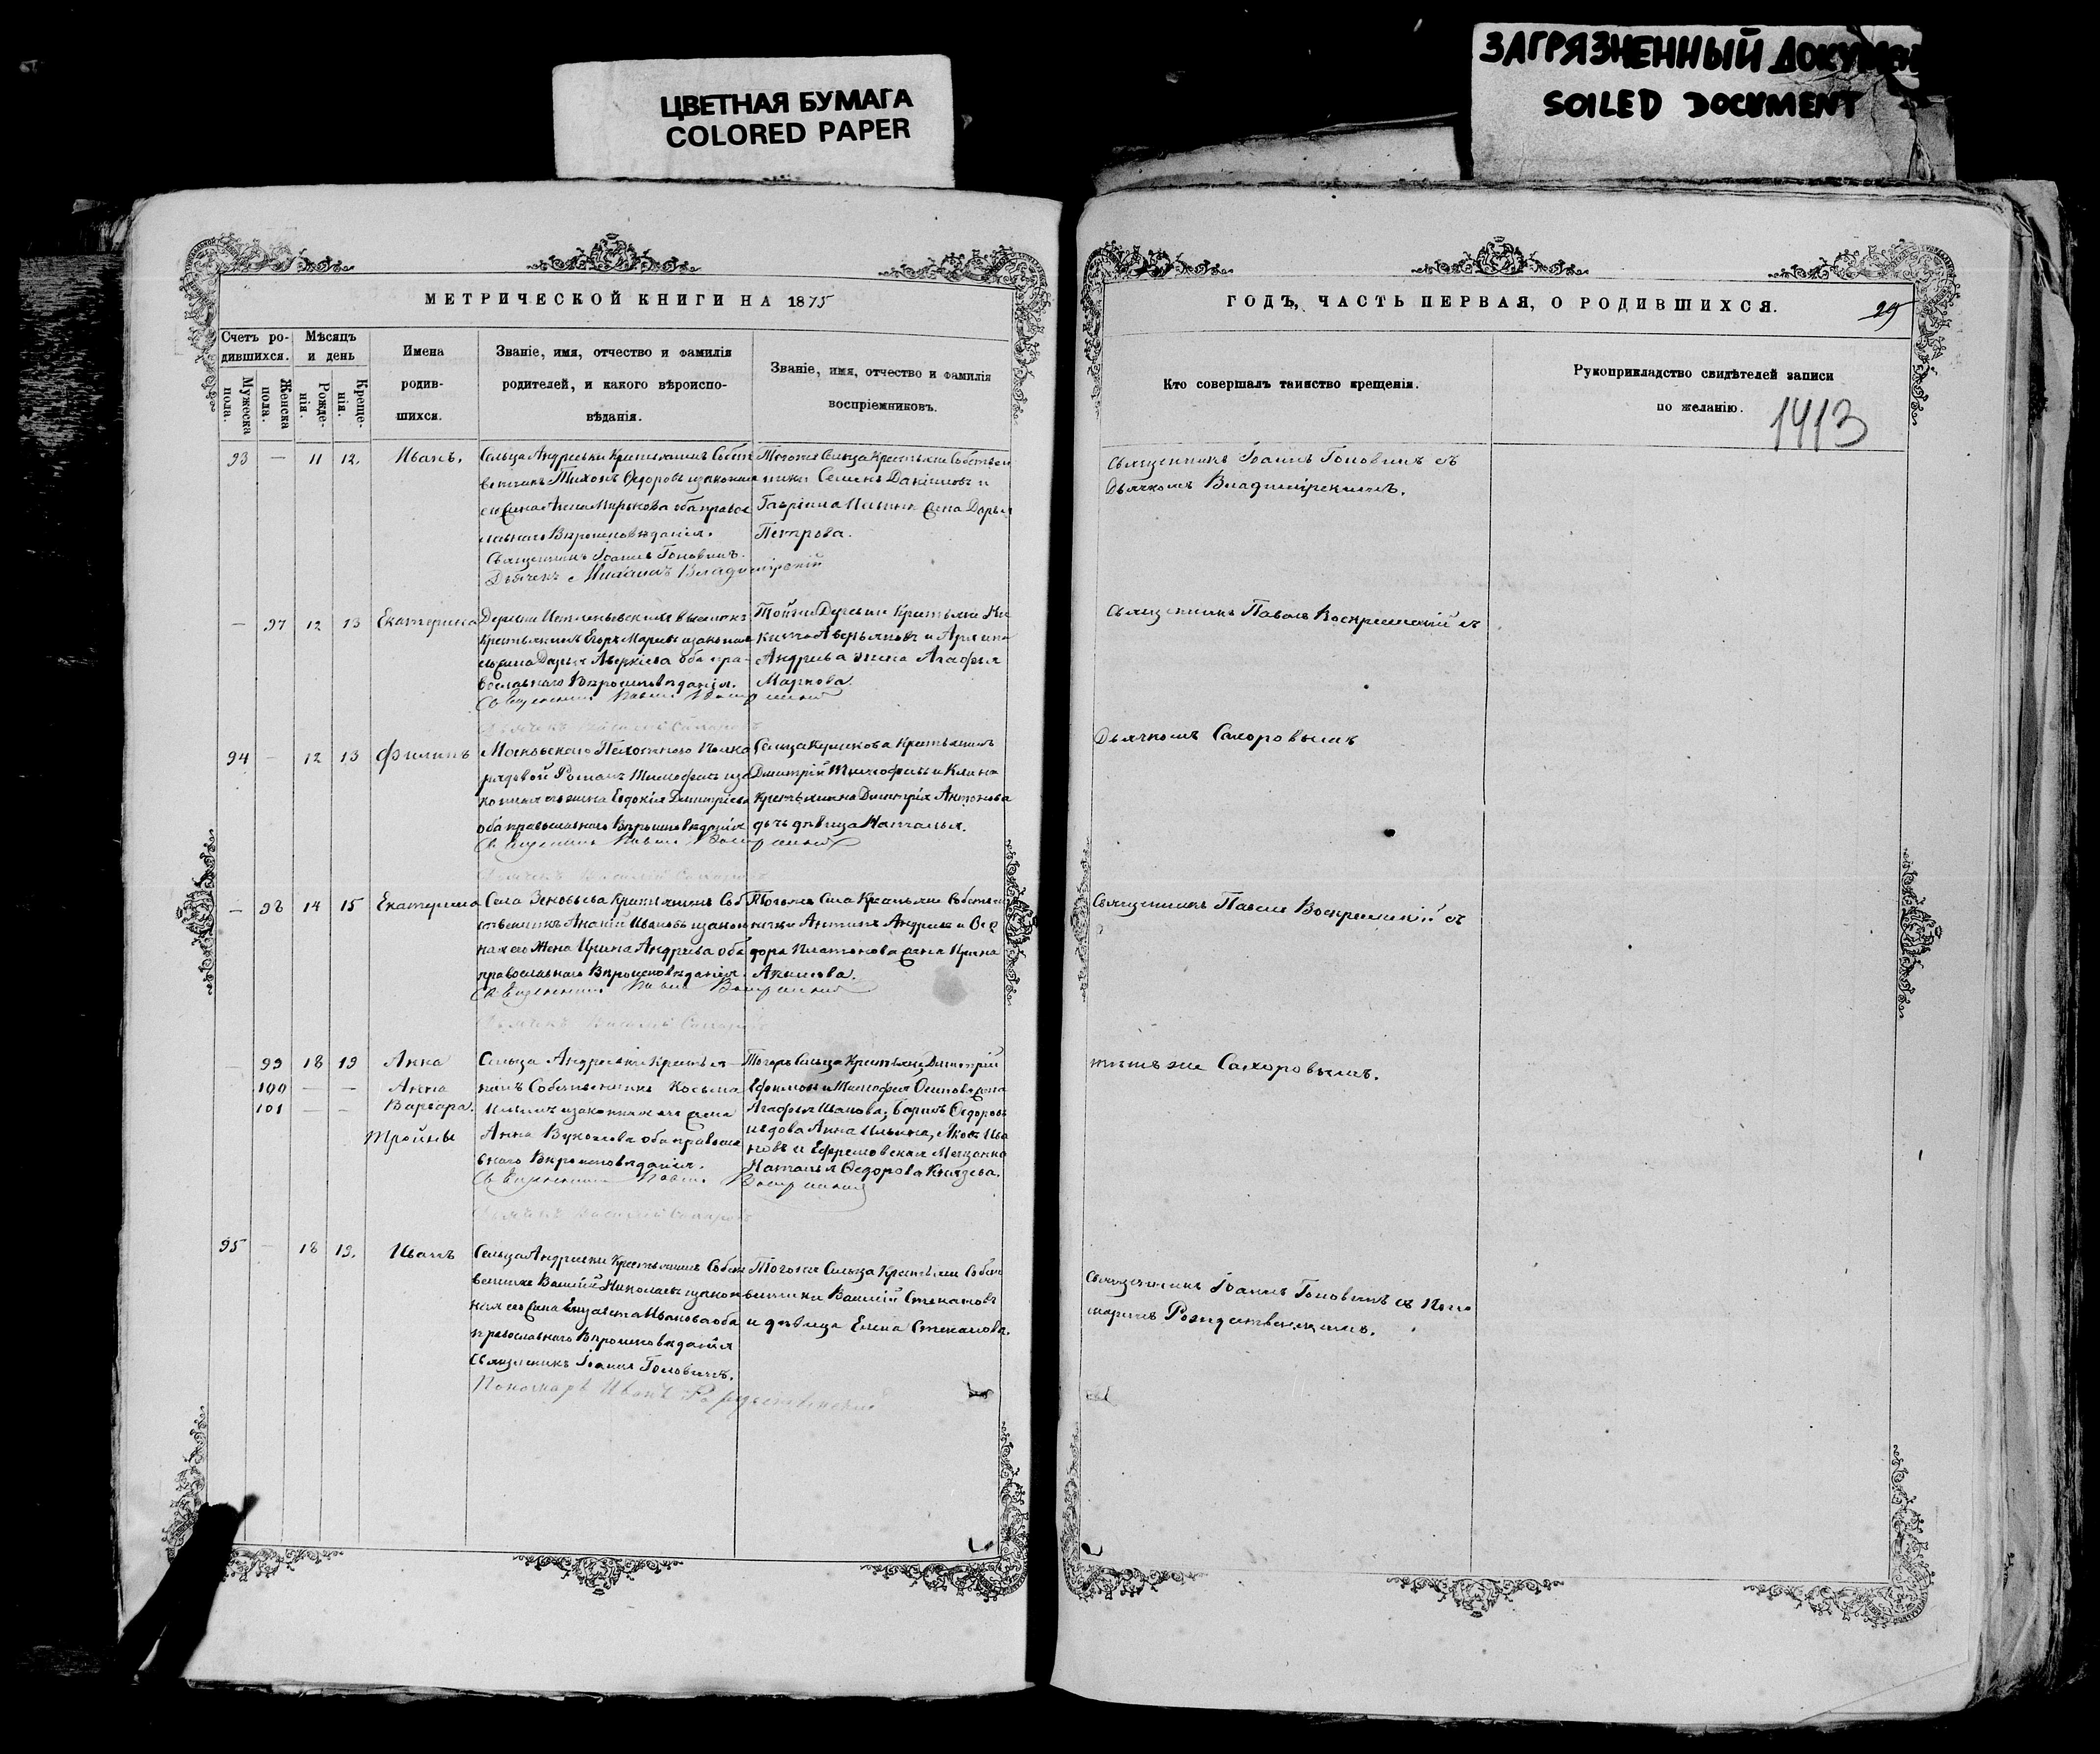 ЦВЕТНАЯ БУМАГА
COLORED PAPER
ЗАГРЯЗНЕННЫЙ ДОКУМЕН
SOILED DOCUMENT
МЕТРИЧЕСКОЙ КНИГИ НА 1875
Счетъ ро-
дившихся.
Мужеска
пола.
Женска
пола.
Мѣсяцъ
и день
Рожде-
нія.
Креще-
нія.
Имена
родив-
шихся.
Званіе, имя, отчество и фамилія
родителей, и какого вѣроиспо-
вѣданія.
Званіе, имя, отчество и фамилія
воспріемниковъ.
93 — 11 12. Иванъ.
Сельца Андреевки Крестьянинъ Собст
венникъ Тихонъ Ѳедоровъ и законная
его жена Миркова оба право
славнаго Вѣроисповѣданія.
Священникъ Іоаннъ Головинъ.
Дьячекъ Михаилъ Владимірскій
Тогоже Сельца Крестьяне Собствен
ники Семенъ Даниловъ и
Гавріила Ильина жена Дарья
Петрова.
— 97 12 13 Екатерина
Крестьянинъ Егоръ и законная
его жена Дарья Аверкіева оба пра-
вославнаго Вѣроисповѣданія.
Священникъ Павелъ Воскресенскій
Тойже Крестьяне Ни
кита Аверьяновъ и
Андреева жена Агафья
Маркова.
94 — 12 13 Филипъ
Московскаго Пехотнаго Полка
рядовой Романъ Тимофеевъ и за
конная его жена Евдокія Димитріева
оба православнаго Вѣроисповѣданія
Священникъ Павелъ Воскресенскій
Сельца Куликова Крестьянинъ
Димитрій Тимофеевъ и
крестьянина Димитрія Антонова
дочь дѣвица Наталья.
— 98 14 15 Екатерина
Села Зеновьева Крестьянинъ Соб
ственникъ Ананій Ивановъ и закон
ная его Жена Ирина Андреева оба
православнаго Вѣроисповѣданія.
Священникъ Павелъ Воскресенскій
Тогоже Села Крестьяне Собствен
ники Антипъ Андреевъ и Ѳео
дора Платонова жена Ирина
Акимова.
99 18 19 Анна
100 — — Анна
101 — — Варвара.
Тройни
Сельца Андреевки Крестья
нинъ Собственникъ Косьма
Ильинъ и законная его жена
Анна Вуколова оба правосла
внаго Вѣроисповѣданія.
Священникъ Павелъ Воскресенскій
Тогожъ Сельца Крестьяне Димитрій
Ефимовъ и Тимофея Осипова жена
Агафья Иванова; Ѳедоровъ
и вдова Анна Ильина, Яковъ Ива
новъ и Ефремовская Мещанка
Наталья Ѳедорова Князева.
95 — 18 19. Иванъ
Сельца Андреевки Крестьянинъ Собст
венникъ Василій Николаевъ и закон
ная его жена Елизавета Иванова оба
православнаго Вѣроисповѣданія
Священникъ Іоаннъ Головинъ.
Пономарь Иванъ Рождественскій
Тогоже Сельца Крестьяне Собст
венники Василій Степановъ
и дѣвица Елена Степанова.
ГОДЪ, ЧАСТЬ ПЕРВАЯ, О РОДИВШИХСЯ.
29
Кто совершалъ таинство крещенія.
Рукоприкладство свидѣтелей записи
по желанію.
1413
Священникъ Іоаннъ Головинъ съ
Дьячкомъ Владимірскимъ.
Священникъ Павелъ Воскресенскій съ
Дьячкомъ Сахоровымъ
Священникъ Павелъ Воскресенскій съ
тѣмъ же Сахоровымъ.
Священникъ Іоаннъ Головинъ съ Поно
маремъ Рождественскимъ.